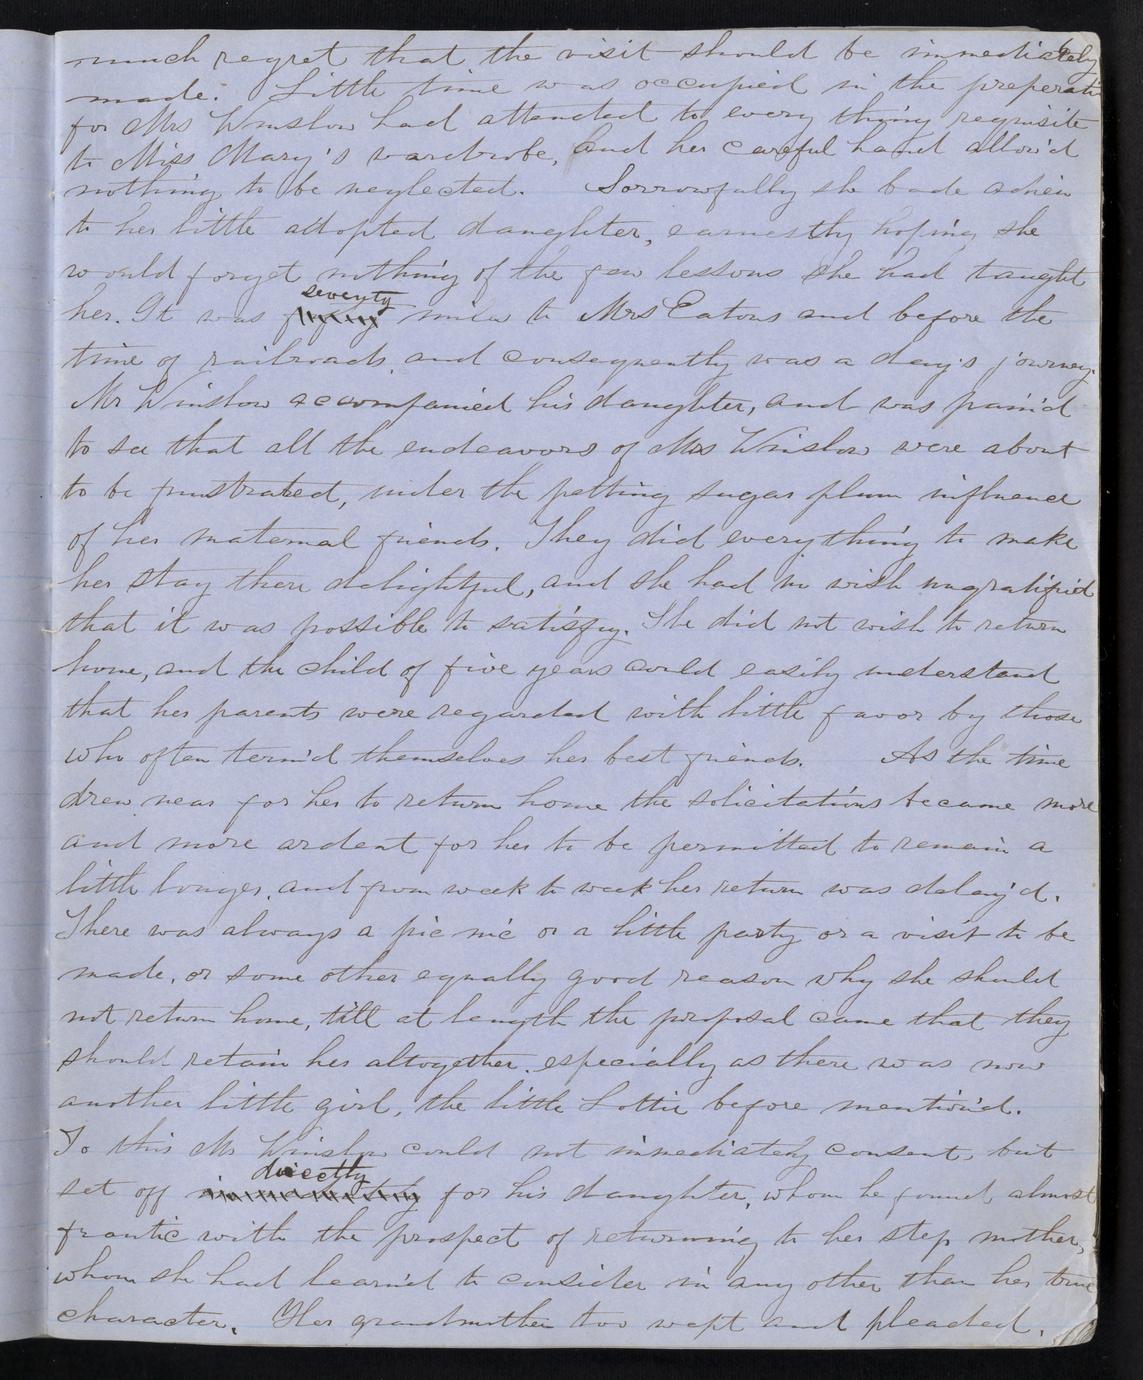 much regret that the visit should be immediately
made. Little time was occupied in the preperati
for Mrs Winslow had attended to every thing requisite
to Miss Mary's wardrobe, and her careful hand allow'd
nothing to be neglected. Sorrowfully she bade adieu
to her little adopted daughter, earnestly hoping she
would forget nothing of the few lessons she had taught
her. It was seventy miles to Mrs Eatons and before the
time of railroads, and consequently was a day's journey.
Mr Winslow accompanied his daughter, and was pain'd
to see that all the endeavors of Mrs Winslow were about
to be frustrated, under the petting sugar plum influence
of her maternal friends. They did everything to make
her stay there delightful, and she had no wish ungratified
that it was possible to satisfy. She did not wish to return
home, and the child of five years could easily understand
that her parents were regarded with little favor by those
who often term'd themselves her best friends. As the time
drew near for her to return home the solicitations became more
and more ardent for her to be permitted to remain a
little longer, and from week to week her return was delay'd.
There was always a pic nic or a little party or a visit to be
made, or some other equally good reason why she should
not return home, till at length the proposal came that they
should retain her altogether, especially as there was now
another little girl, the little Lottie before mention'd.
To this Mr Winslow could not immediately consent, but
set off directly for his daughter, whom he found almost
frantic with the prospect of returning to her step mother,
whom she had learn'd to consider in any other than her true
character. Her grandmother too wept and pleaded.